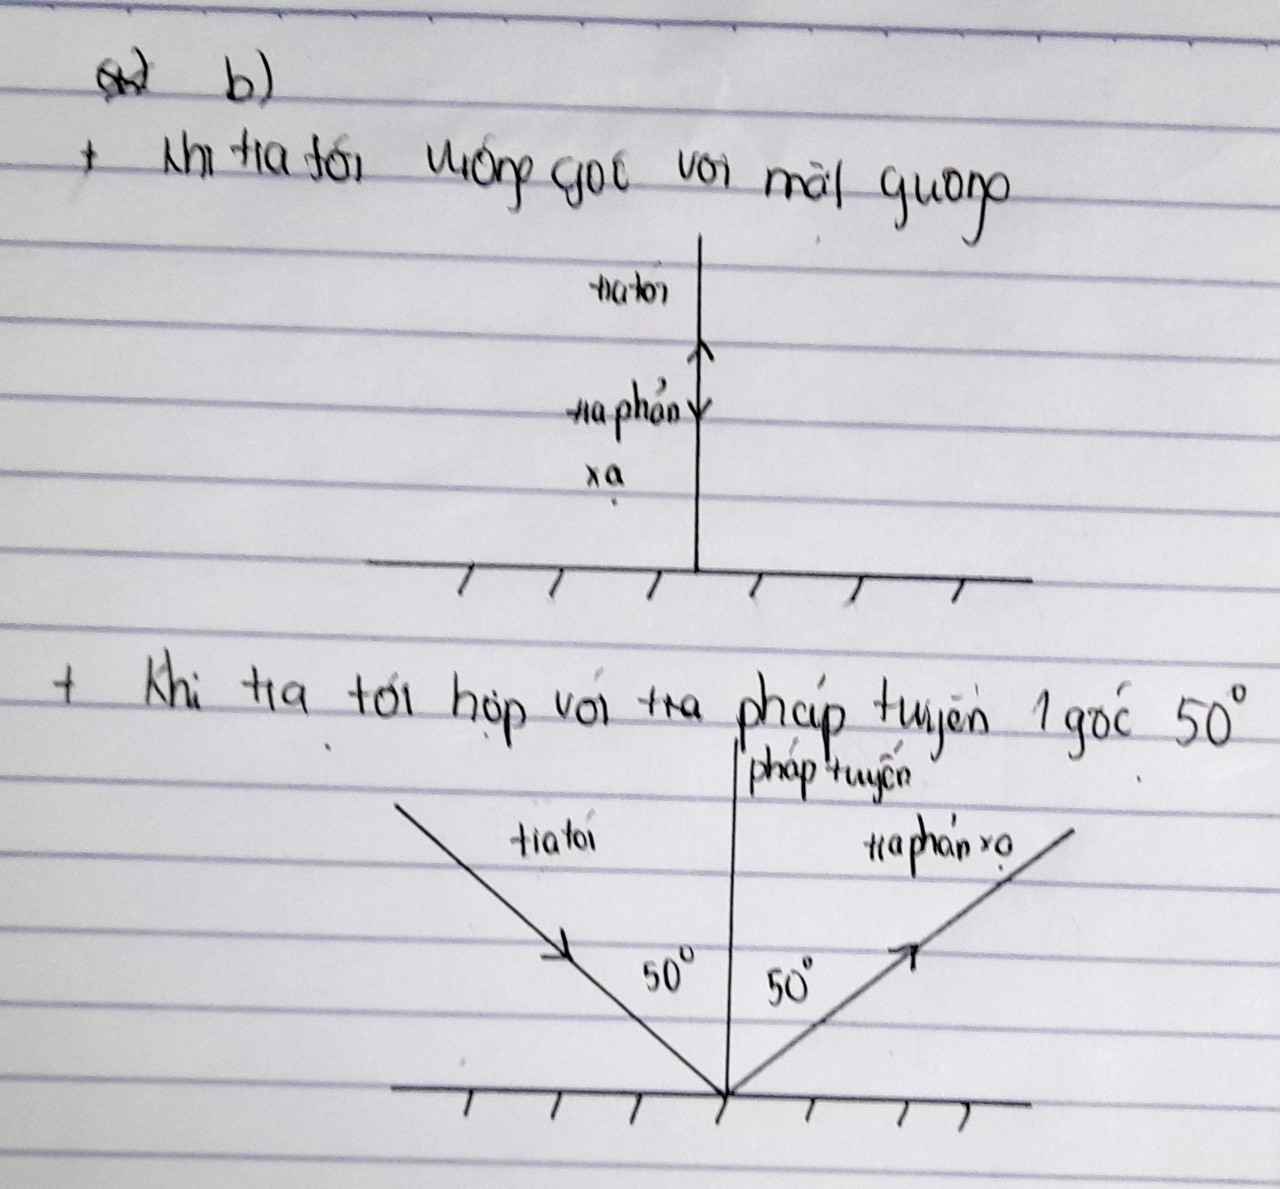 b)
+ Khi tia tới vuông góc với mặt gương
tia tới
tia phản
xạ
+ Khi tia tới hợp với tia pháp tuyến 1 góc 50⁰
pháp tuyến
tia tới
tia phản xạ
50⁰ 50⁰